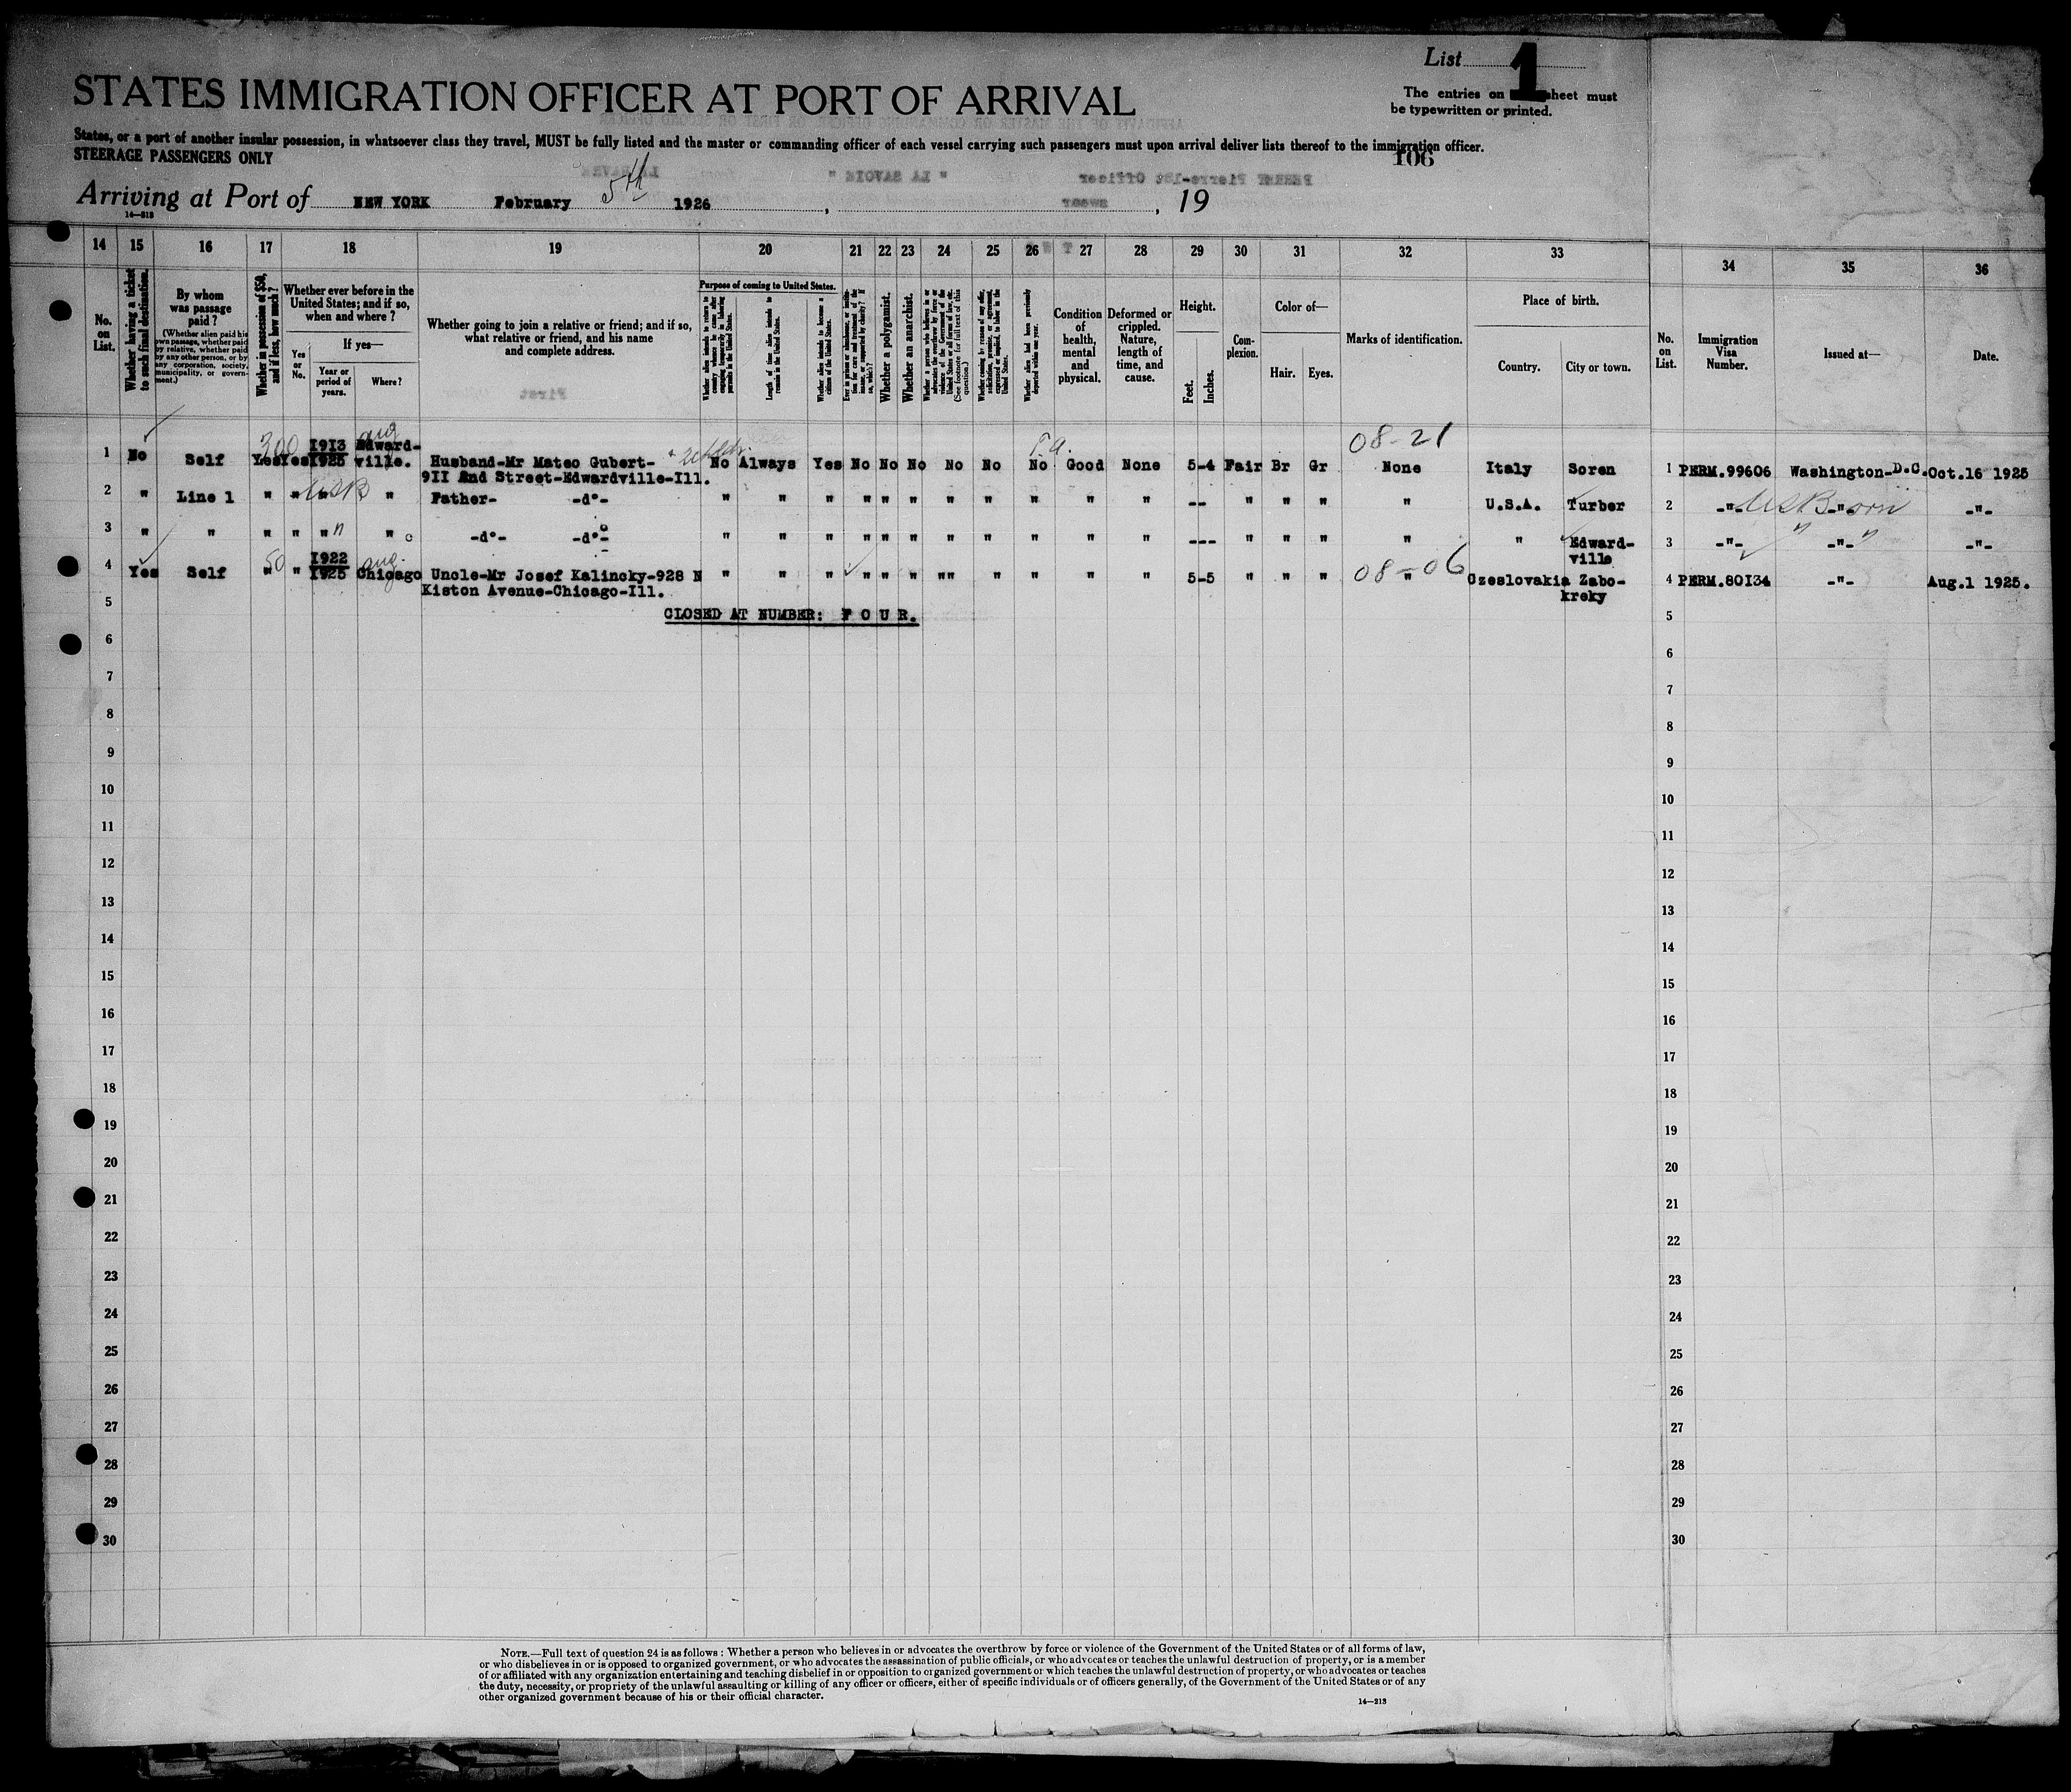 List 1
STATES IMMIGRATION OFFICER AT PORT OF ARRIVAL
The entries on sheet must
be typewritten or printed.
States, or a port of another insular possession, in whatsoever class they travel, MUST be fully listed and the master or commanding officer of each vessel carrying such passengers must upon arrival deliver lists thereof to the immigration officer.
STEERAGE PASSENGERS ONLY
106
Arriving at Port of NEW YORK February 5th 1926 , , 19
14—213
14 15 16 17 18 19 20 21 22 23 24 25 26 27 28 29 30 31 32 33 34 35 36
No. on List.
Whether having a ticket to such final destination.
By whom was passage paid?
(Whether alien paid his own passage, whether paid by relative, whether paid by any other person, or by any corporation, society, municipality, or government.)
Whether in possession of $50, and if less, how much?
Whether ever before in the United States; and if so, when and where?
Yes or No.
If yes—
Year or period of years.
Where?
Whether going to join a relative or friend; and if so, what relative or friend, and his name and complete address.
Purpose of coming to United States.
Length of time alien intends to remain in the United States.
Whether alien intends to become a citizen of the United States.
Whether a polygamist.
Whether an anarchist.
(See footnote for full text of this question.)
Condition of health, mental and physical.
Deformed or crippled. Nature, length of time, and cause.
Height.
Feet. Inches.
Complexion.
Color of—
Hair. Eyes.
Marks of identification.
Place of birth.
Country. City or town.
No. on List.
Immigration Visa Number.
Issued at—
Date.
1 No Self 300 Yes Yes 1913 1925 aug Edward-
ville. Husband-Mr Mateo Gubert- No Always Yes No No No No No No T.a. Good None 5-4 Fair Br Gr 08-21 None Italy Soren 1 PERM.99606 Washington-D.C. Oct.16 1925
9II 2nd Street-Edwardville-Ill.
2 " Line 1 " " USB " Father- -d°- " " " " " " " " " " " -- " " " " U.S.A. Turber 2 -"- US Born -"- -"-
3 " " " " " " -d°- -d°- " " " " " " " " " " " --- " " " " " Edward-
ville 3 -"- -"- -"-
4 Yes Self 50 " " 1922 1925 aug. Chicago Uncle-Mr Josef Kalincky-928 N " " " " " " "" " " " " 5-5 " " " 08-06 " Czeslovakia Zabo-
kreky 4 PERM.80I34 -"- Aug.1 1925.
Kiston Avenue-Chicago-Ill.
5 CLOSED AT NUMBER: F O U R. 5
6 6
7 7
8 8
9 9
10 10
11 11
12 12
13 13
14 14
15 15
16 16
17 17
18 18
19 19
20 20
21 21
22 22
23 23
24 24
25 25
26 26
27 27
28 28
29 29
30 30
NOTE.—Full text of question 24 is as follows: Whether a person who believes in or advocates the overthrow by force or violence of the Government of the United States or of all forms of law,
or who disbelieves in or is opposed to organized government, or who advocates the assassination of public officials, or who advocates or teaches the unlawful destruction of property, or is a member
of or affiliated with any organization entertaining and teaching disbelief in or opposition to organized government or which teaches the unlawful destruction of property, or who advocates or teaches
the duty, necessity, or propriety of the unlawful assaulting or killing of any officer or officers, either of specific individuals or of officers generally, of the Government of the United States or of any
other organized government because of his or their official character.
14—213